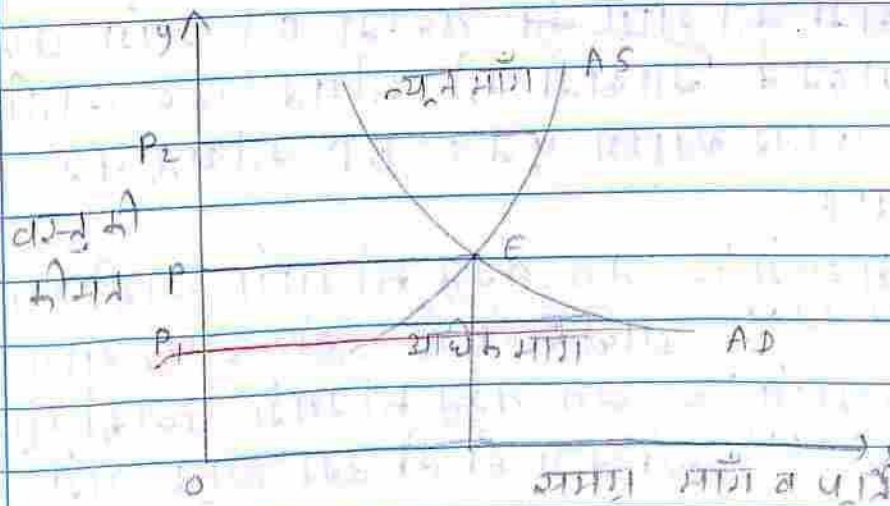 y
न्यून माँग AS
P2
वस्तु की
कीमत P E
P1 अधिक माँग AD
0
समग्र माँग व